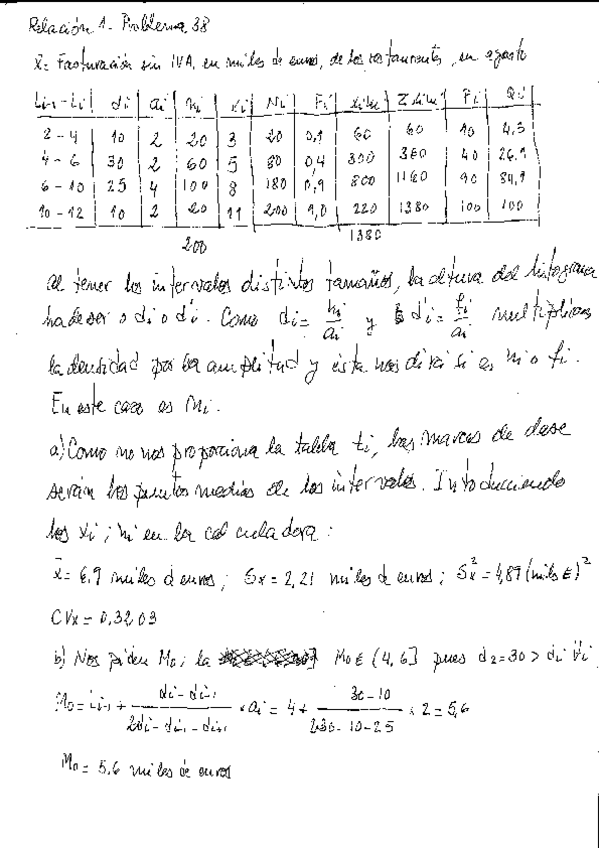 Relación 1. Problema 38
X = Facturación sin IVA, en miles de euros, de los restaurantes, en agosto
Li-1 - Li | di | ai | ni | xi | Ni | Fi | xini | Σxini | Pi | Qi
2 - 4 | 10 | 2 | 20 | 3 | 20 | 0,1 | 60 | 60 | 10 | 4,3
4 - 6 | 30 | 2 | 60 | 5 | 80 | 0,4 | 300 | 360 | 40 | 26,1
6 - 10 | 25 | 4 | 100 | 8 | 180 | 0,9 | 800 | 1160 | 90 | 84,1
10 - 12 | 10 | 2 | 20 | 11 | 200 | 1,0 | 220 | 1380 | 100 | 100
200 1380
Al tener los intervalos distintos tamaños, la altura del histograma
ha de ser o di o d'i. Como di = ni/ai y d'i = fi/ai multiplicamos
la densidad por la amplitud y ésta nos dirá si es ni o fi.
En este caso es ni.
a) Como no nos proporciona la tabla ti, las marcas de clase
serán los puntos medios de los intervalos. Introduciendo
los xi ; ni en la calculadora:
x̄ = 6,9 miles d euros; Sx = 2,21 miles d euros; Sx² = 4,89 (miles €)²
CVx = 0,3203
b) Nos piden Mo; la Mo ∈ (4, 6] pues d2=30 > di ∀i
Mo = Li-1 + (di - di-1)/(2di - di-1 - di+1) × ai = 4 + (30 - 10)/(2·30 - 10 - 25) × 2 = 5,6
Mo = 5,6 miles de euros